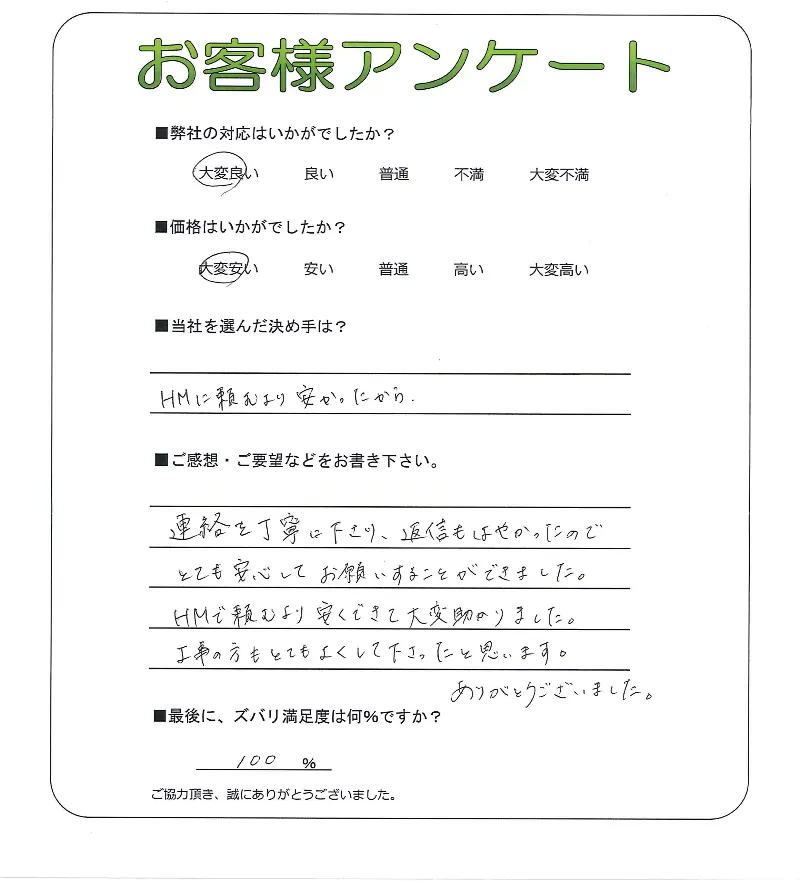 お客様アンケート
■弊社の対応はいかがでしたか？
大変良い 良い 普通 不満 大変不満
■価格はいかがでしたか？
大変安い 安い 普通 高い 大変高い
■当社を選んだ決め手は？
HMに頼むより安かったから.
■ご感想・ご要望などをお書き下さい。
連絡を丁寧に下さり、返信もはやかったので
とても安心してお願いすることができました。
HMで頼むより安くできて大変助かりました。
工事の方もとてもよくして下さったと思います。
ありがとうございました。
■最後に、ズバリ満足度は何%ですか？
100 %
ご協力頂き、誠にありがとうございました。